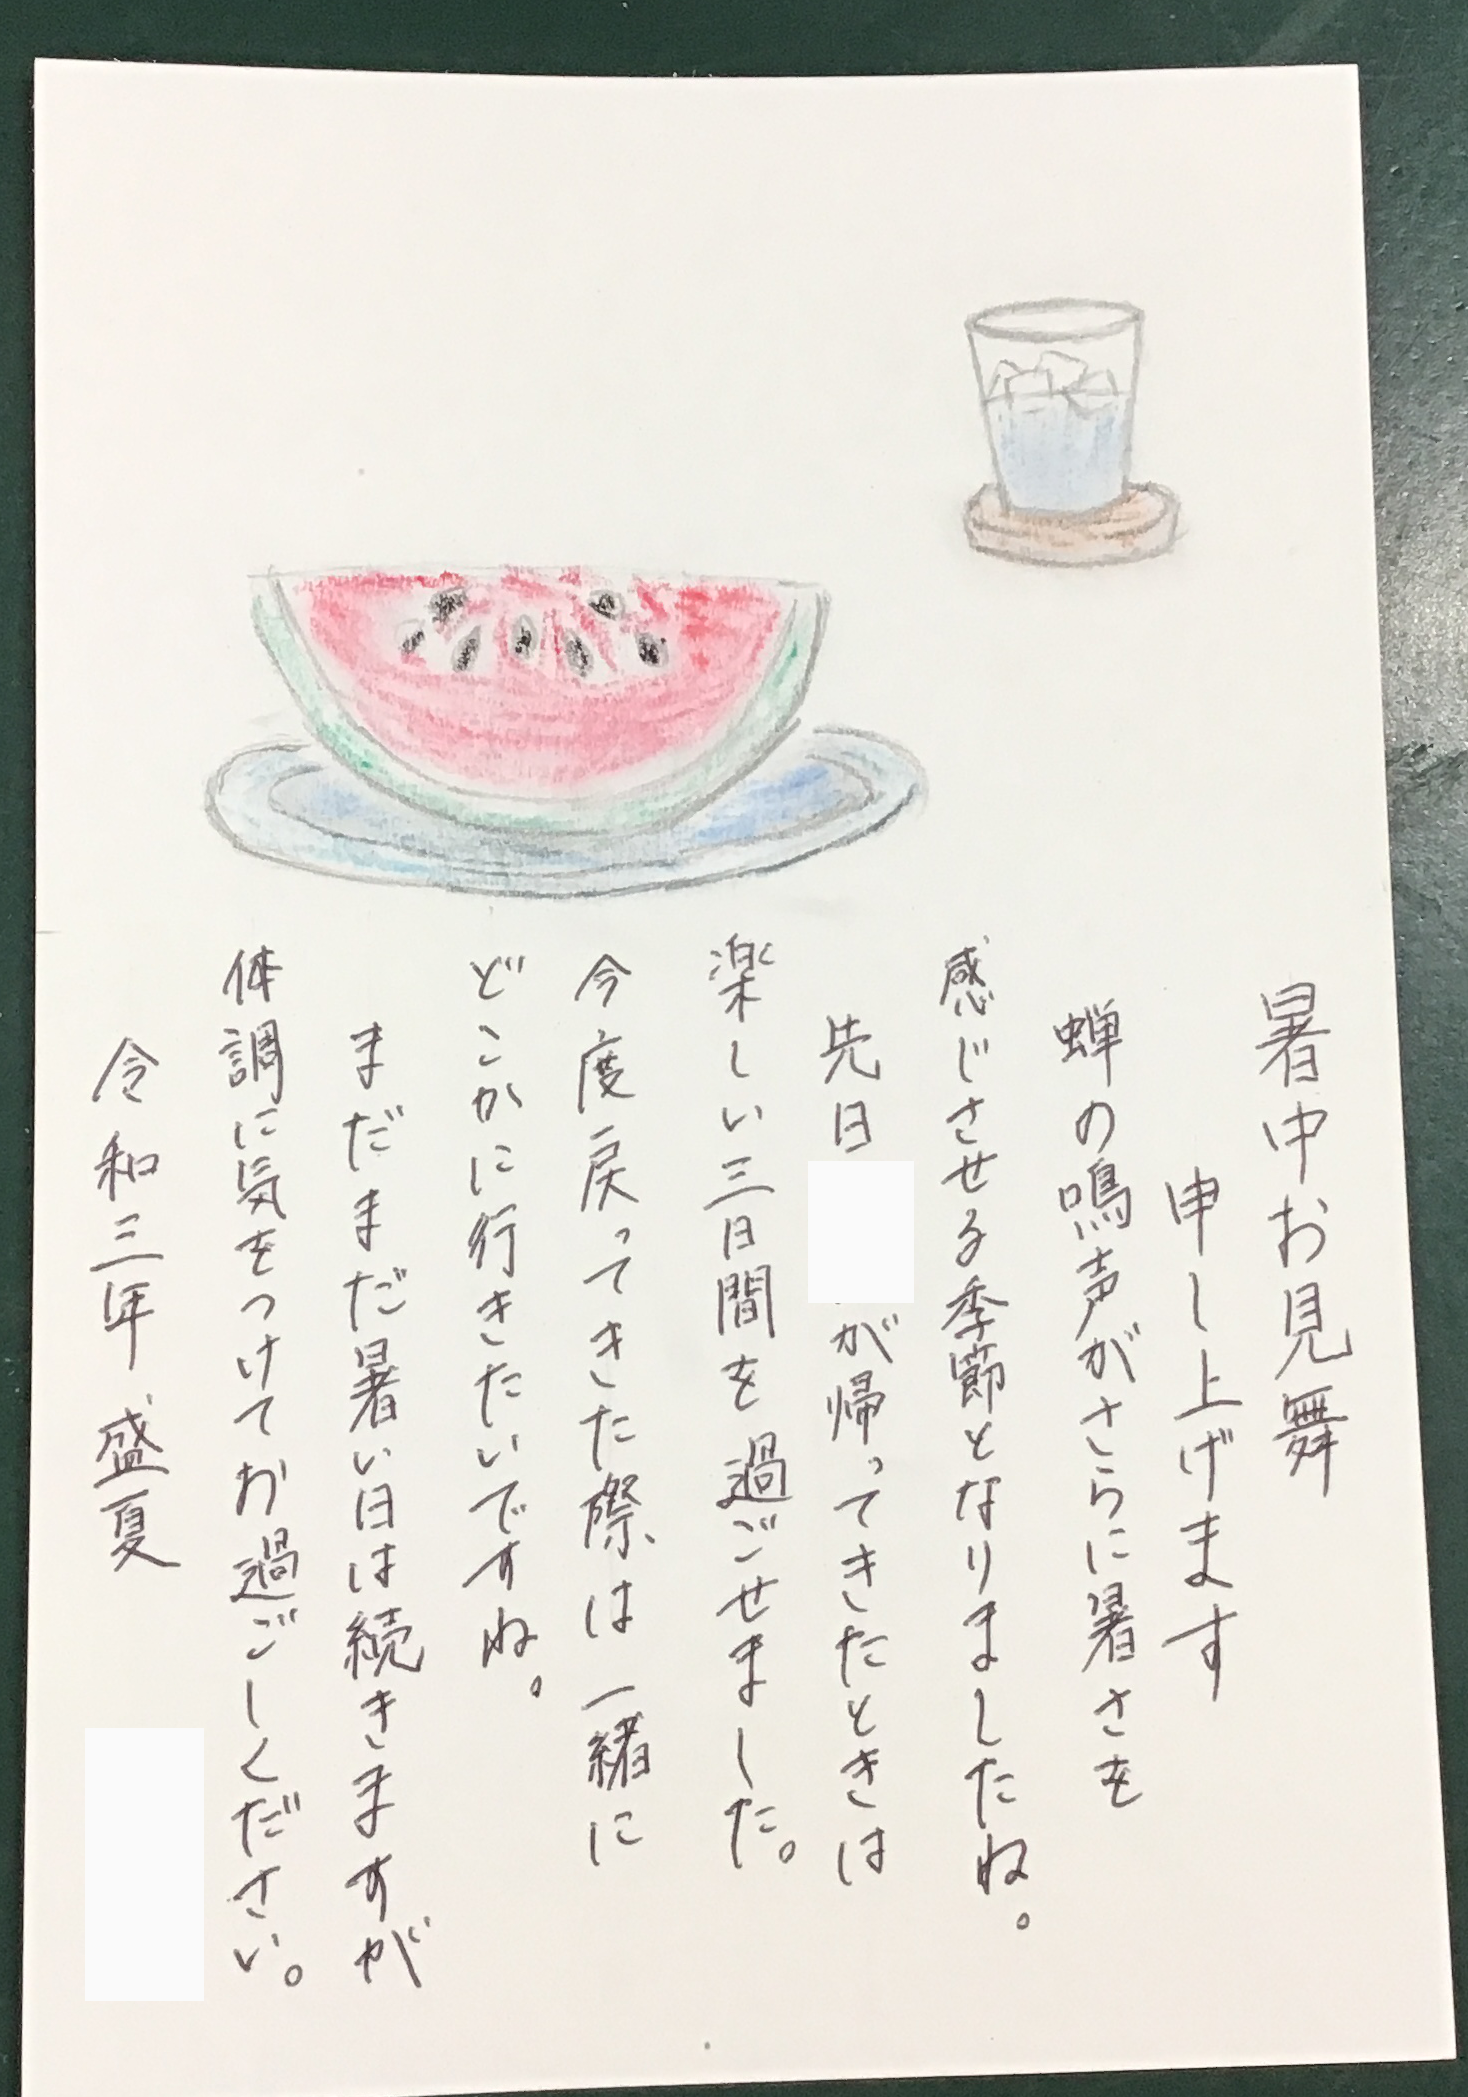 暑中お見舞
申し上げます
蝉の鳴声がさらに暑さを
感じさせる季節となりましたね。
先日
が帰ってきたときは
楽しい三日間を過ごせました。
今度戻ってきた際は一緒に
どこかに行きたいですね。
まだまだ暑い日は続きますが
体調に気をつけてお過ごしください。
令和三年 盛夏